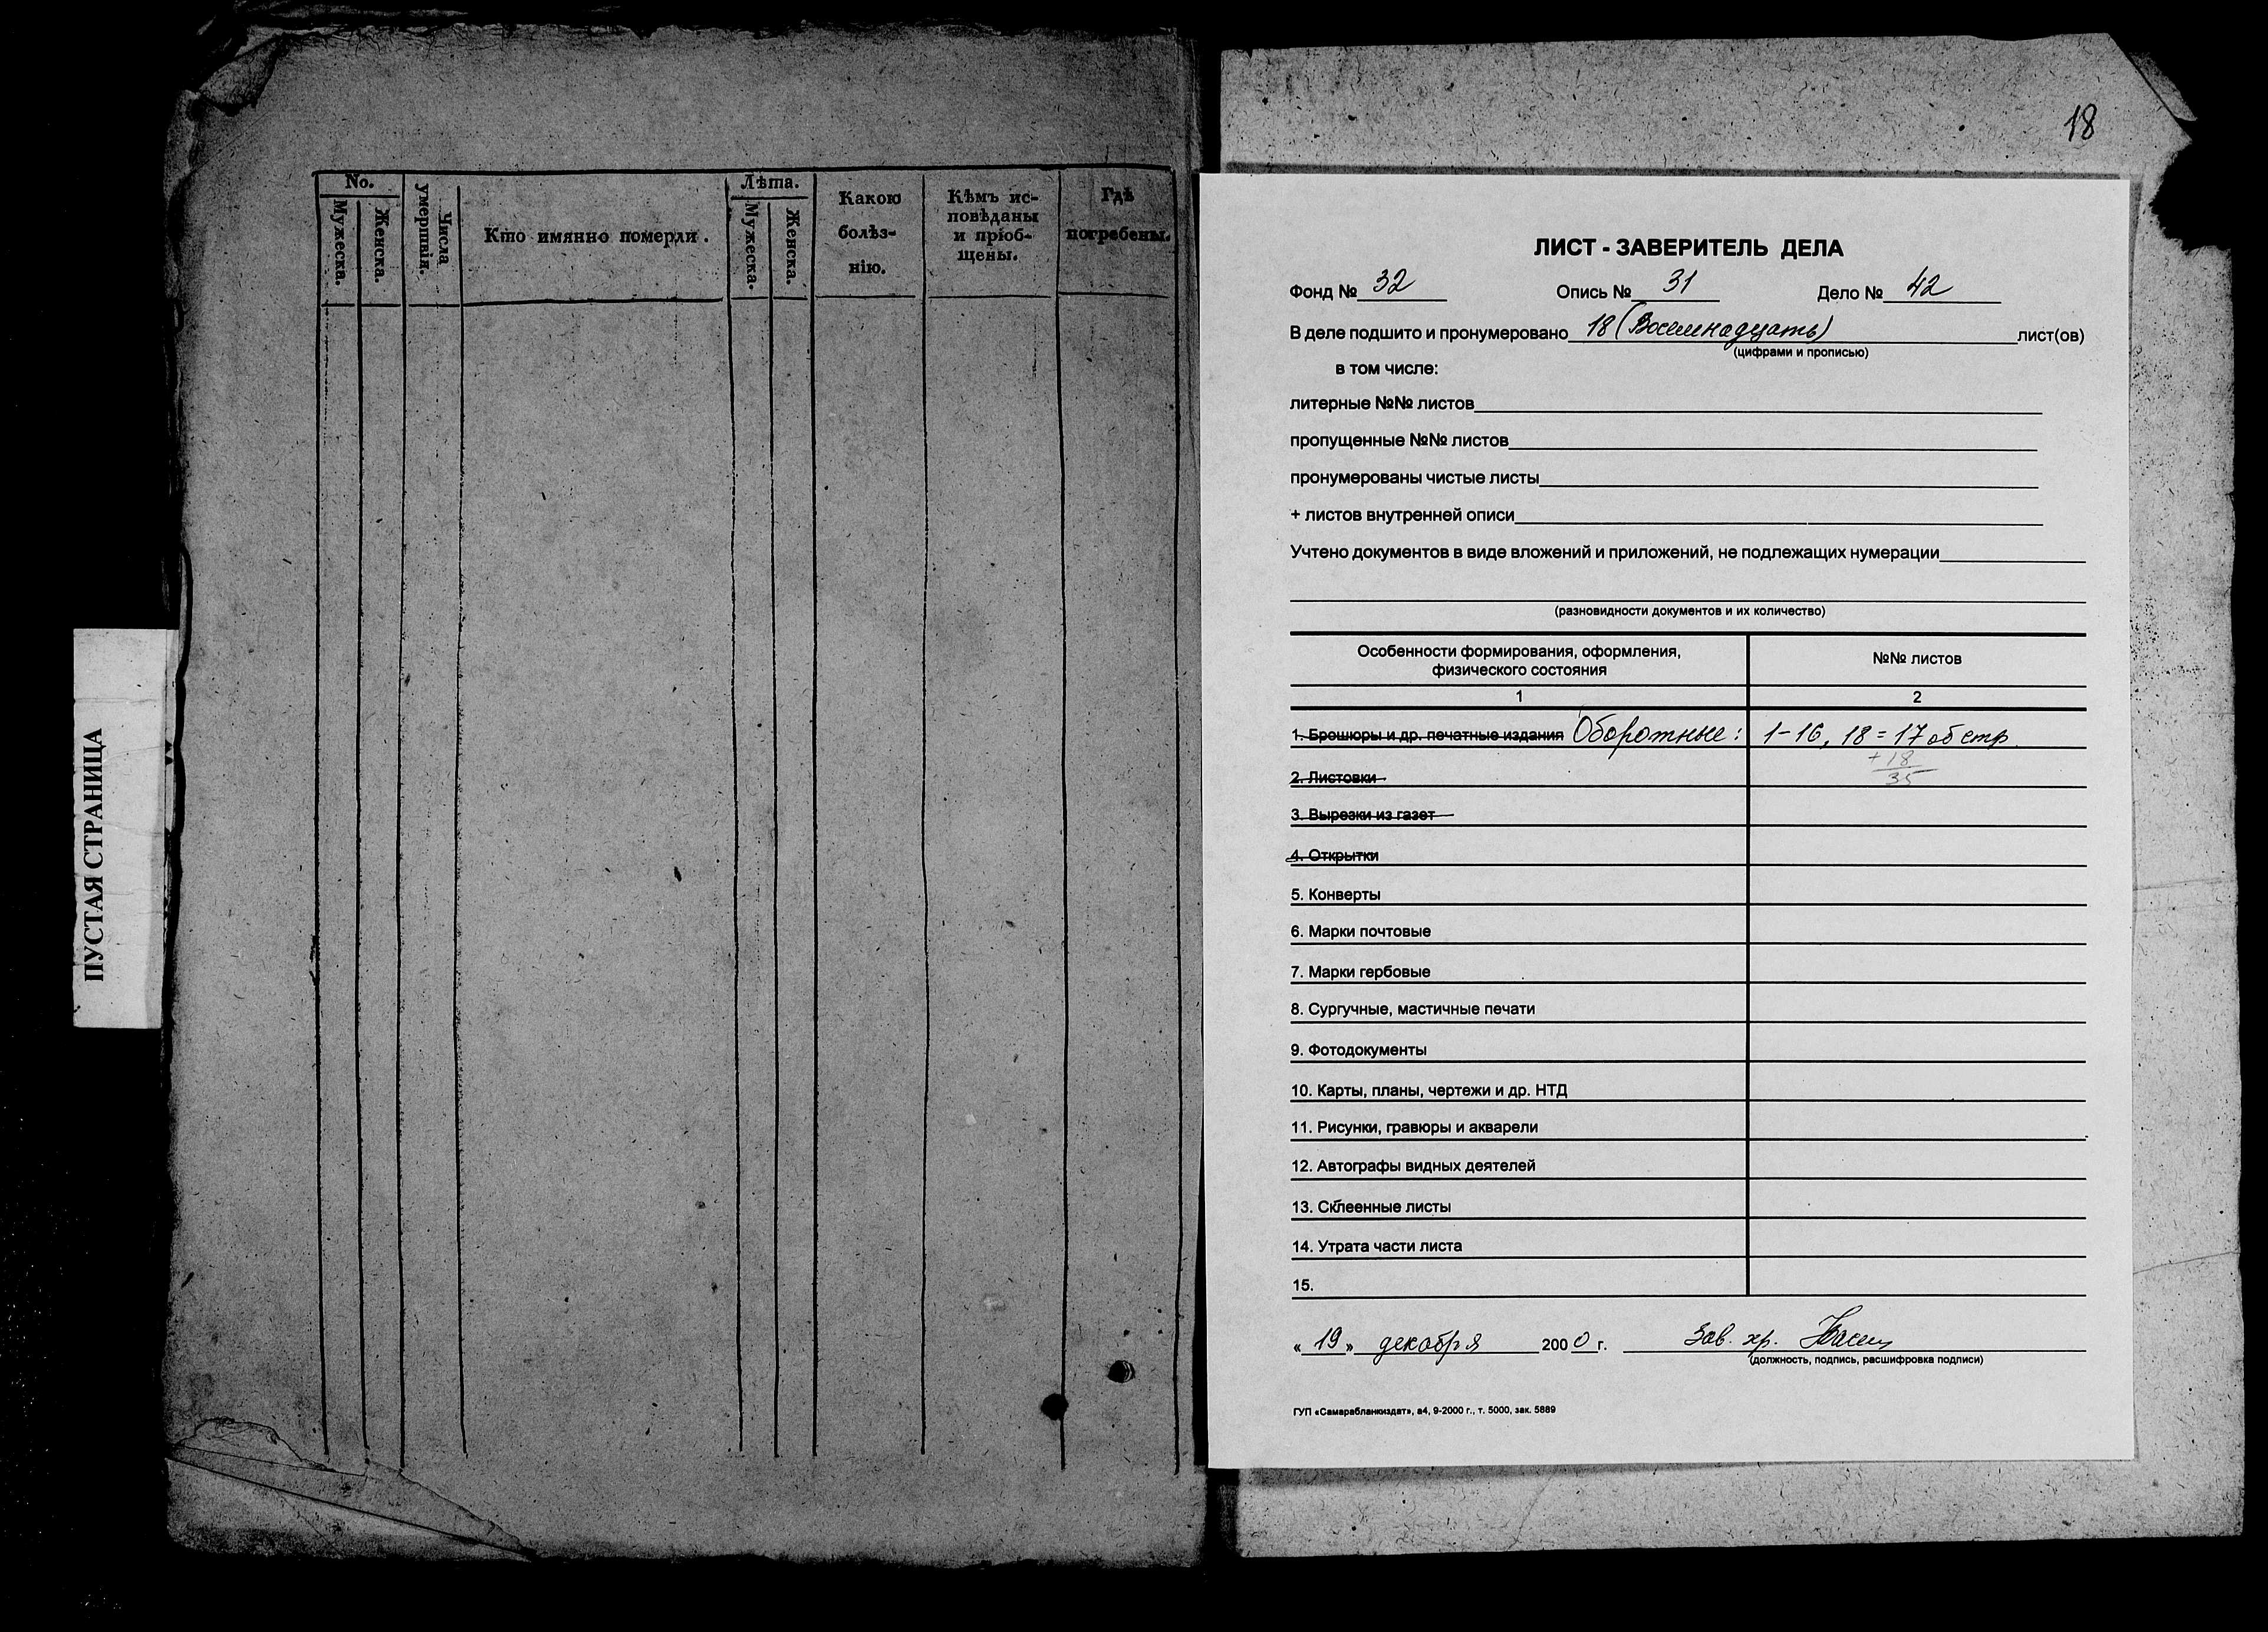 ПУСТАЯ СТРАНИЦА
No.
Мужеска.
Женска.
Числа
умершвiя.
Кто имянно померли.
Лѣта.
Мужеска.
Женска.
Какою
болѣз-
нiю.
Кѣмъ ис-
повѣданы
и прiоб-
щены.
Гдѣ
погребены.
18
ЛИСТ - ЗАВЕРИТЕЛЬ ДЕЛА
Фонд № 32 Опись № 31 Дело № 42
В деле подшито и пронумеровано 18 (Восемнадцать) лист(ов)
(цифрами и прописью)
в том числе:
литерные №№ листов
пропущенные №№ листов
пронумерованы чистые листы
+ листов внутренней описи
Учтено документов в виде вложений и приложений, не подлежащих нумерации
(разновидности документов и их количество)
Особенности формирования, оформления,
физического состояния
№№ листов
1 2
1. Брошюры и др. печатные издания Оборотные: 1-16, 18 = 17 об стр.
+ 18
2. Листовки 35
3. Вырезки из газет
4. Открытки
5. Конверты
6. Марки почтовые
7. Марки гербовые
8. Сургучные, мастичные печати
9. Фотодокументы
10. Карты, планы, чертежи и др. НТД
11. Рисунки, гравюры и акварели
12. Автографы видных деятелей
13. Склеенные листы
14. Утрата части листа
15.
« 19 » декабря 2000 г. Зав. хр.
(должность, подпись, расшифровка подписи)
ГУП «Самарабланкиздат», а4, 9-2000 г., т. 5000, зак. 5889